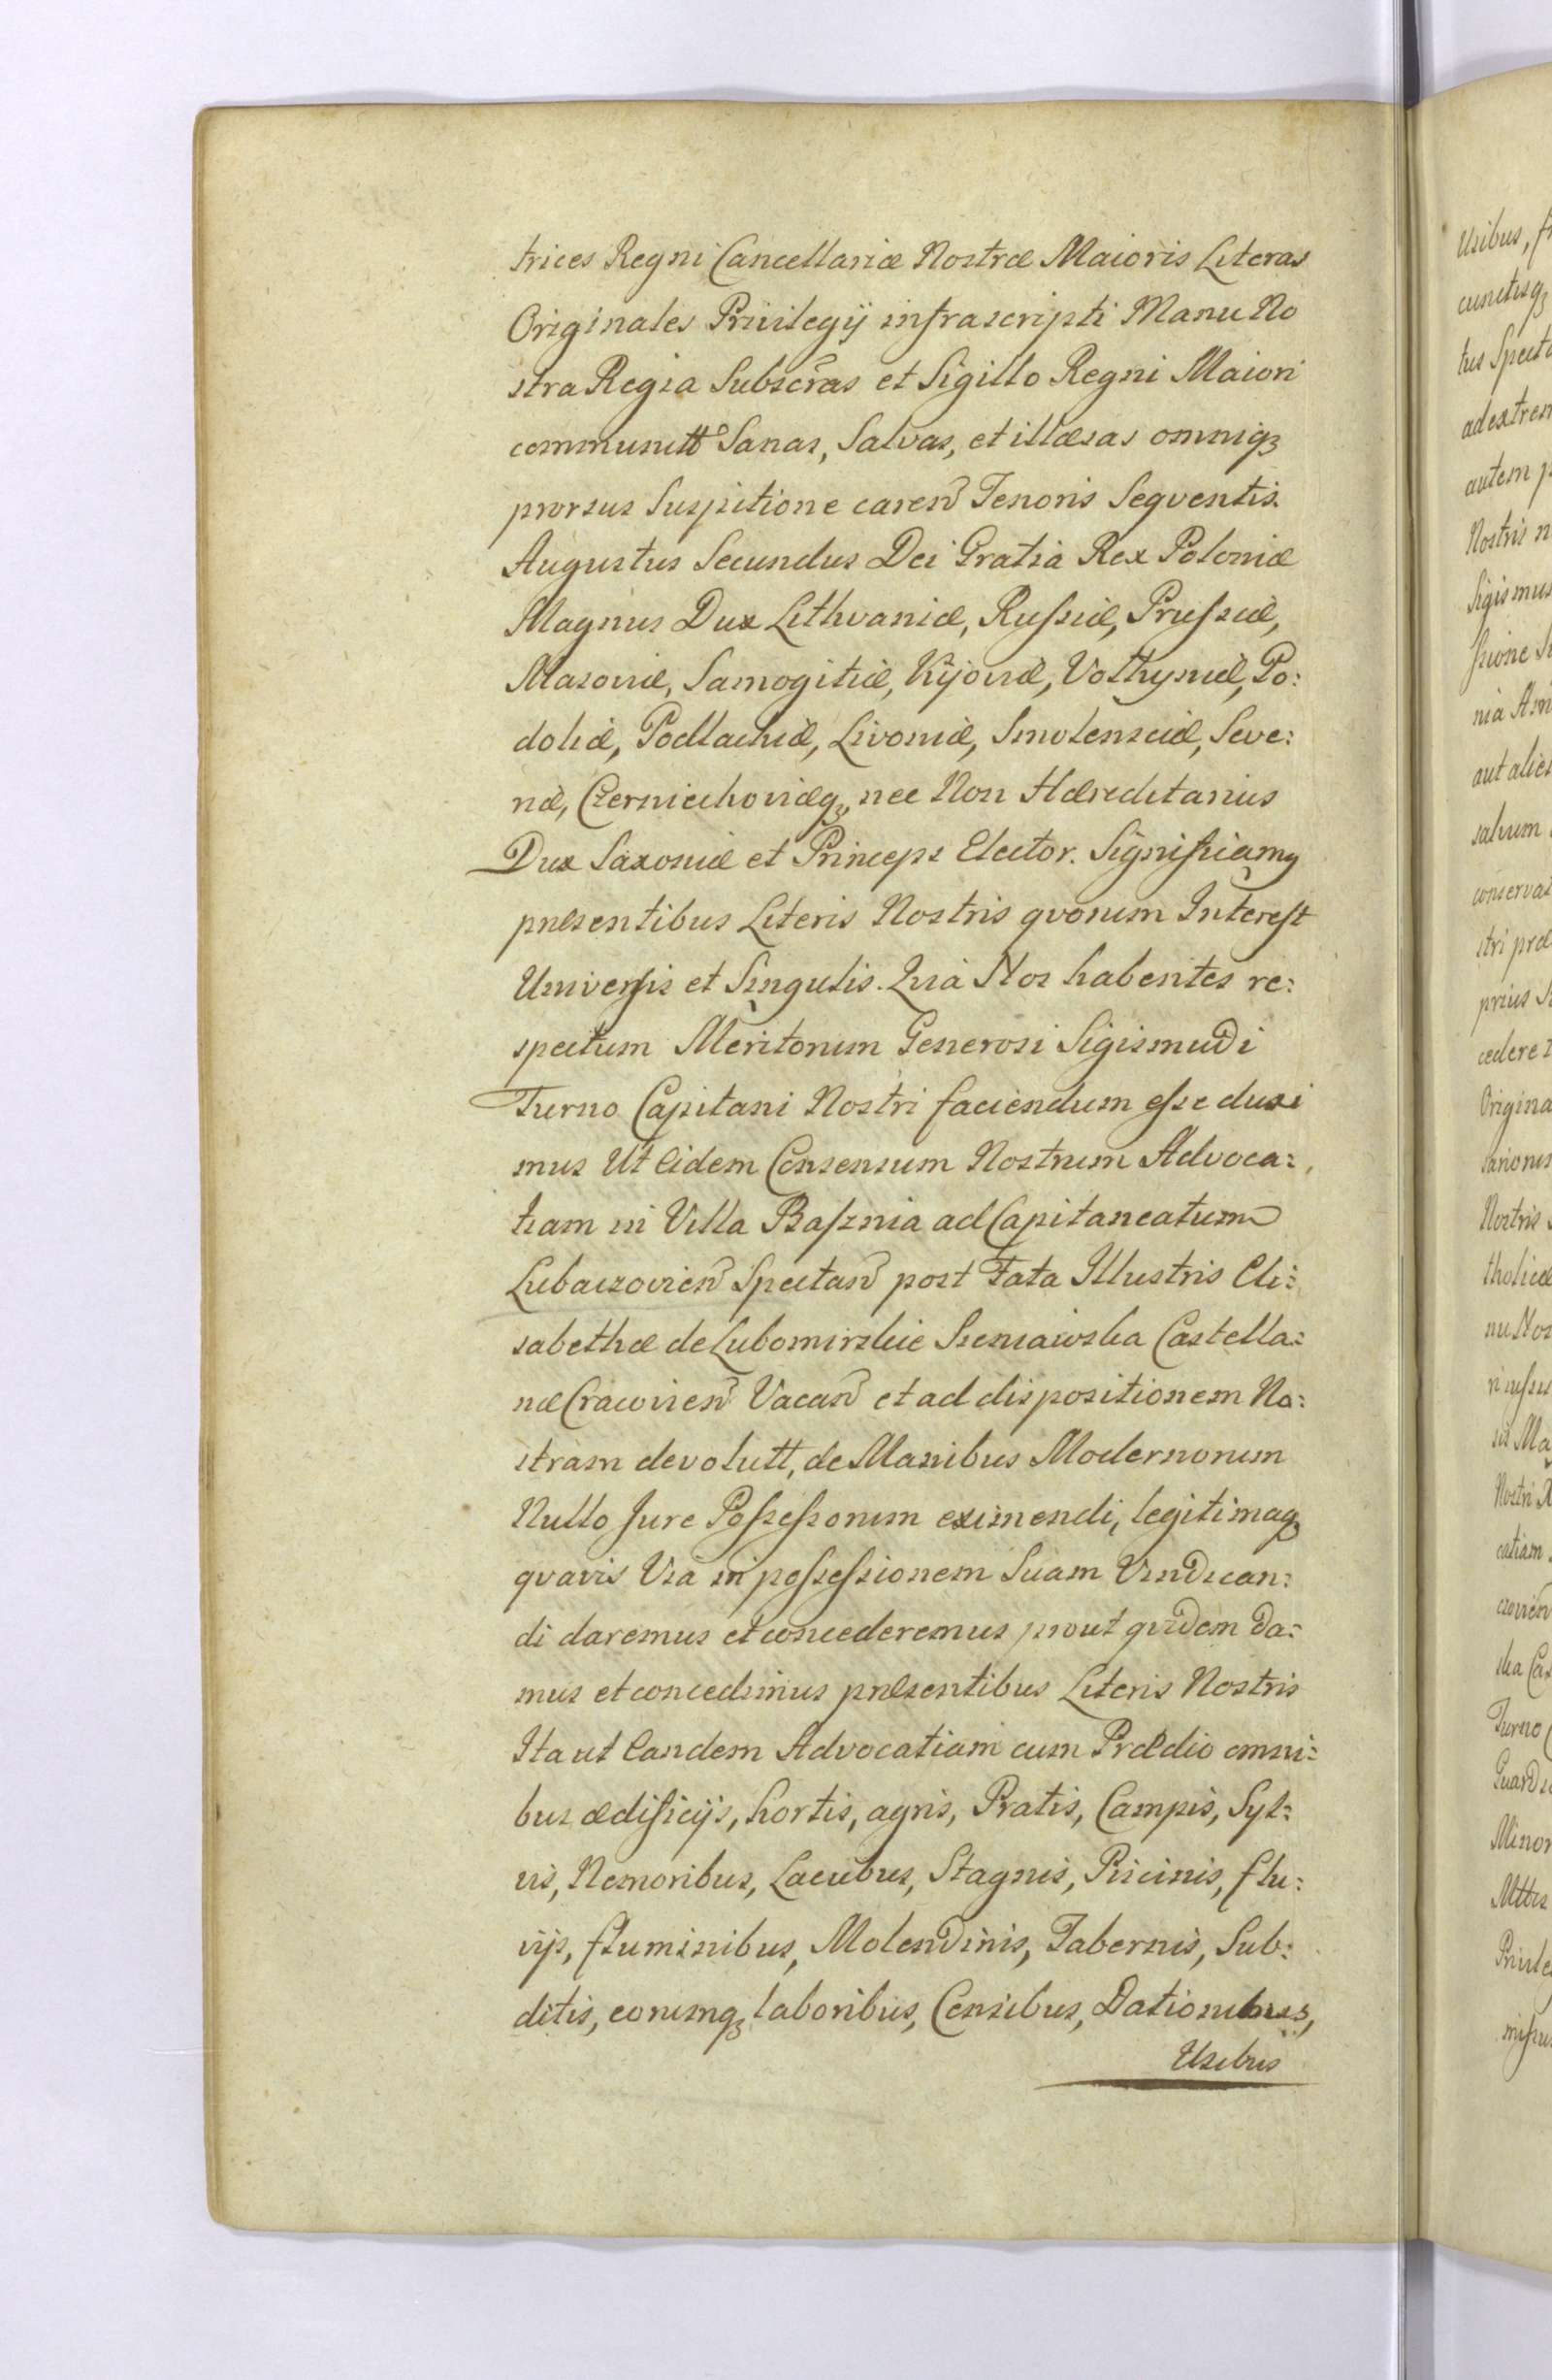 trices Regni Cancellariæ Nostræ Maioris Literas
Originales Privilegij infrascripti Manu No
stra Regia Subscr̃as et Sigillo Regni Maiori
communitt° Sanas, Salvas, et illæsas omniq3
prorsus Suspitione caren̄ Tenoris Seqventis.
Augustus Secundus Dei Gratia Rex Poloniæ
Magnus Dux Lithvaniæ, Rufsiæ, Prufsiæ,
Masoviæ, Samogitiæ, Kijoviæ, Volhyniæ, Po:
doliæ, Podlachiæ, Livoniæ, Smolensciæ, Seve:
riæ, Czerniechoviæq3, nec Non Hæreditarius
Dux Saxoniæ et Princeps Elector. Significamy
præsentibus Literis Nostris qvorum Interest
Universis et Singulis. Qvia Nos habentes re:
spectum Meritorum Generosi Sigismudi
Turno Capitani Nostri faciendum efse duxi
mus Ut Eidem Consensum Nostrum Advoca:
tiam in Villa Bafznia ad Capitaneatum
Lubaczovien̄ Spectan̄ post Fata Illustris Eli:
sabethæ de Lubomirskie Sieniawska Castella:
næ Cracovien̄ Vacan̄ et ad dispositionem No:
stram devolutt, de Manibus Modernorum
Nullo Jure Pofsefsorum eximendi, legitimaq3
qvavis Via in pofsefsionem Suam Vindican:
di daremus et concederemus prout qvidem Da:
mus et concedimus præsentibus Literis Nostris
Ita ut Eandem Advocatiam cum Prædio omni:
bus ædificijs, hortis, agris, Pratis, Campis, Syl:
vis, Nemoribus, Lacubus, Stagnis, Piscinis, flu:
vijs, fluminibus, Molendinis, Tabernis, Sub:
ditis, eorumq3 laboribus, Censibus, Dationibus,
Usibus
Usibus, f
cunctisq3
tus Spect
ad extrem
autem p
Nostris n
Sigismu
nia
aut alie
salvum
conserva
stri præ
prius S
cedere
Origina
Nostris
tholicæ
nu Nos
Nostri
catiam
ska Ca
Turno
Minor